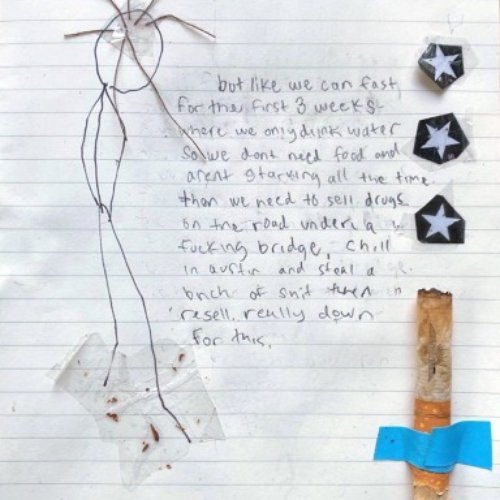 but like we can fast
for the first 3 weeks-
where we only drink water
so we dont need food and
arent starving all the time.
than we need to sell drugs
on the road under a
fucking bridge, chill
in austin and steal a
bnch of shit then
resell. really down
for this.